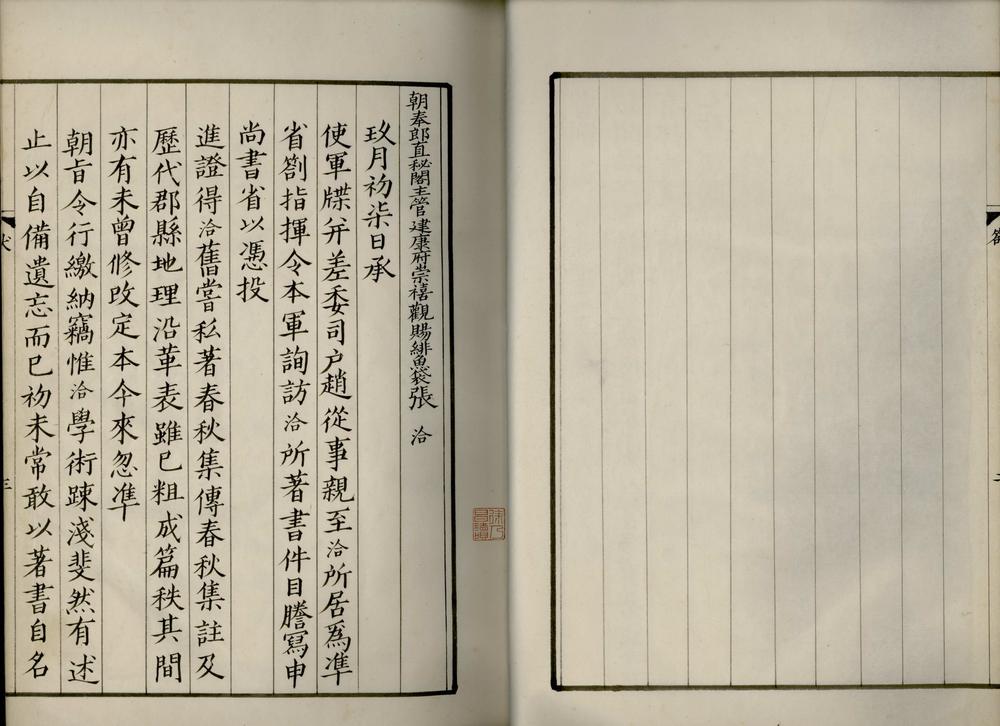 朝奉郎直秘閣主管建康府崇禧觀賜緋魚袋張洽
玖月初柒日承
使軍牒并差委司户趙從事親至洽所居爲凖
省劄指揮令本軍詢訪洽所著書件目謄寫申
尚書省以憑投
進證得洽舊嘗私著春秋集傳春秋集註及
歷代郡縣地理沿革表雖已粗成篇秩其間
亦有未曾修改定本今來忽凖
朝旨令行繳納竊惟洽學術踈淺斐然有述
止以自備遺忘而已初未常敢以著書自名
三